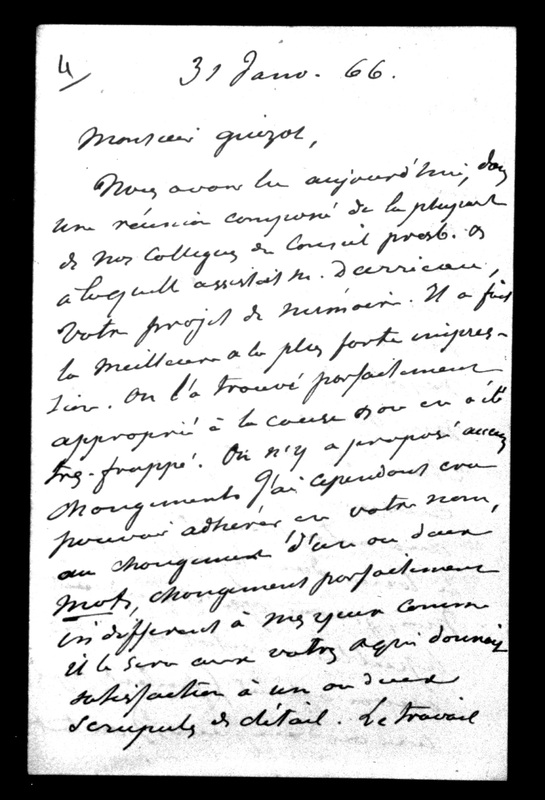 4
31 Janv. 66.
Monsieur Guizot,
Nous avons lu aujourd'hui, dans
une réunion composé de la plupart
de nos collègues du Conseil presb. et
à laquelle assistait M. Darricau,
votre projet de mémoire. Il a fait
la meilleure et la plus forte impres-
sion. On l'a trouvé parfaitement
approprié à la cause et on en a été
très-frappé. On n'y a proposé aucuns
changements. J'ai cependant cru
pouvoir adhérer en votre nom,
au changement d'un ou deux
mots, changement parfaitement
indifférent à mes yeux comme
il le sera aux votres et qui donnait
satisfaction à un ou deux
scrupules de détail. Le travail